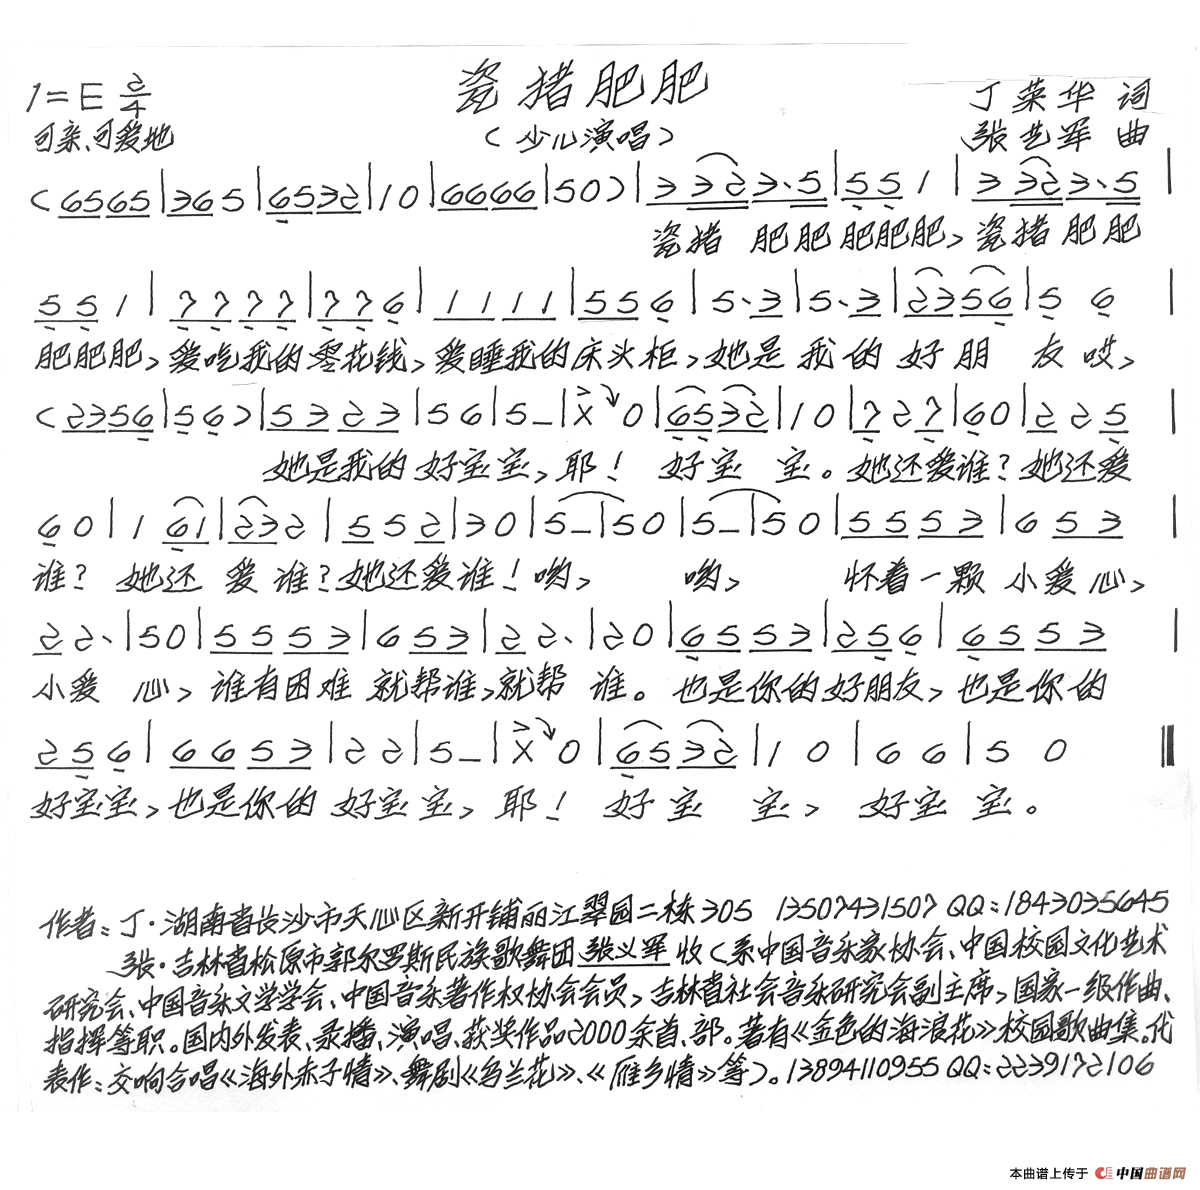 瓷猪肥肥
1=E 2/4
丁荣华 词
可亲、可爱地
(少儿演唱)
张艺军 曲
(6565|365|6532|10|6666|50)|3 323·5|551|3 323·5|
瓷猪 肥肥肥肥肥,瓷猪肥肥
551|7777|776|1111|556|5·3|5·3|2356|5 6|
肥肥肥,爱吃我的零花钱,爱睡我的床头柜,她是我的好朋 友哎,
(2356|56)|5323|56|5–|X 0|6532|10|727|60|225|
她是我的好宝宝,耶! 好宝 宝。她还爱谁?她还爱
60|1 61|232|552|30|5–|50|5–|50|5553|653|
谁? 她还 爱谁?她还爱谁!哟, 哟, 怀着一颗小爱心,
22·|50|5553|653|22·|20|6553|256|6553|
小爱 心,谁有困难就帮谁,就帮 谁。也是你的好朋友,也是你的
256|6653|22|5–|X 0|6532|1 0|66|5 0
好宝宝,也是你的好宝宝,耶! 好宝 宝, 好宝 宝。
作者:丁·湖南省长沙市天心区新开铺丽江翠园二栋305 13507431507 QQ:1843035645
张·吉林省松原市郭尔罗斯民族歌舞团张义军收(系中国音乐家协会、中国校园文化艺术
研究会、中国音乐文学学会、中国音乐著作权协会会员,吉林省社会音乐研究会副主席,国家一级作曲、
指挥等职。国内外发表、录播、演唱、获奖作品2000余首、部。著有《金色的海浪花》校园歌曲集。代
表作:交响合唱《海外赤子情》、舞剧《乌兰花》、《雁乡情》等)。13894110955 QQ:2239172106
本曲谱上传于 中国曲谱网